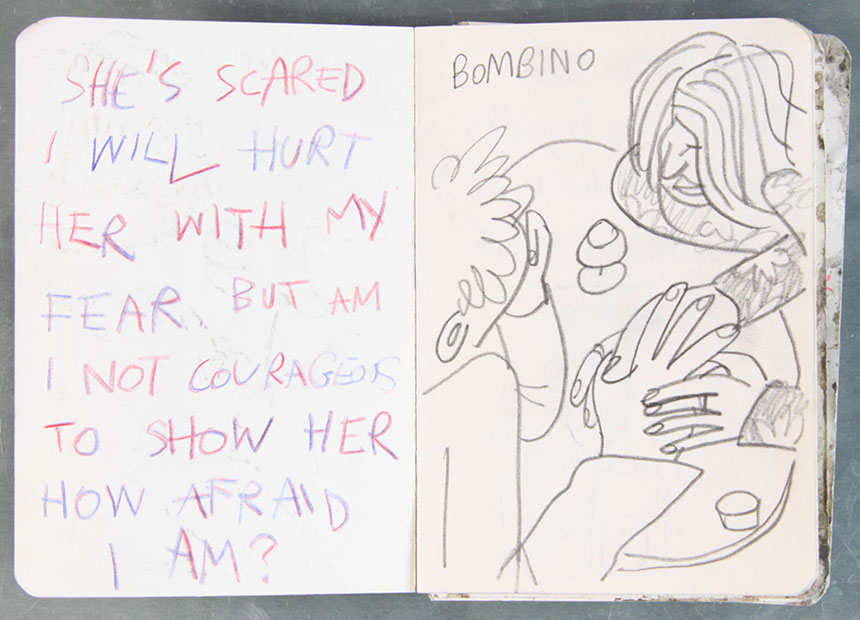 SHE'S SCARED
I WILL HURT
HER WITH MY
FEAR. BUT AM
I NOT COURAGEOUS
TO SHOW HER
HOW AFRAID
I AM?
BOMBINO